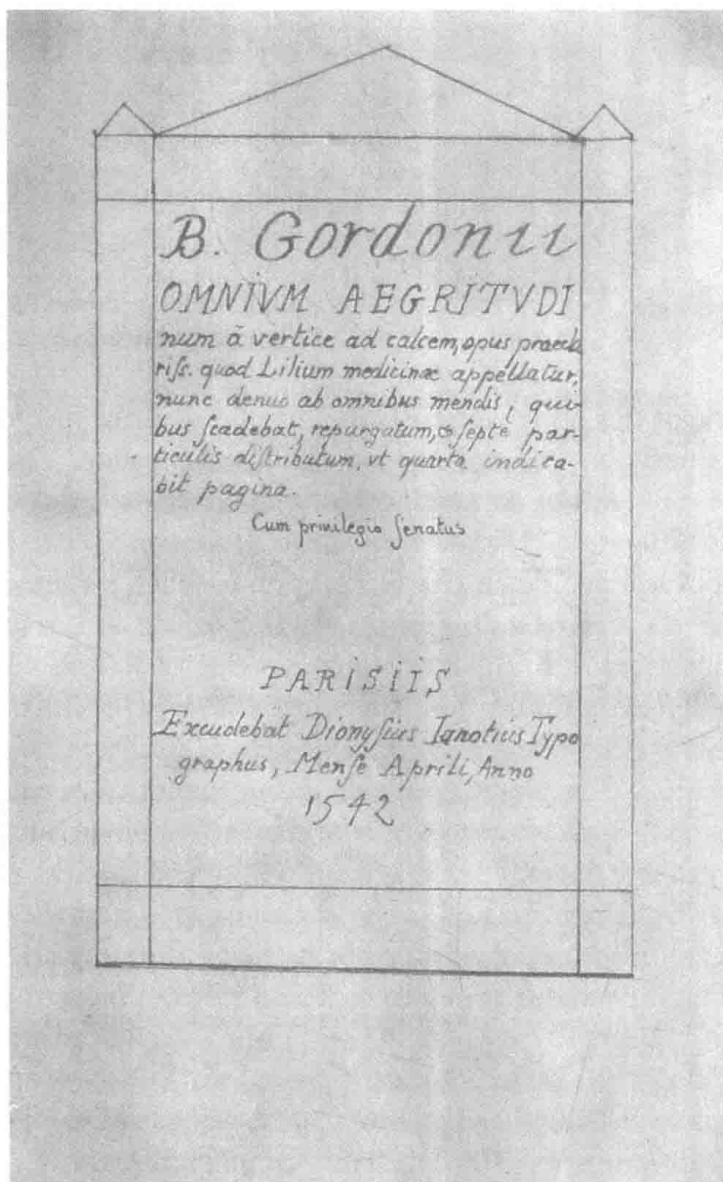 B. Gordonii
OMNIVM AEGRITVDI
num ā vertice ad calcem, opus praecla
riſs. quod Lilium medicinæ appellatur,
nunc denuo ab omnibus mendis, qui-
bus ſcadebat, repurgatum, & ſeptē par-
ticulis diſtributum, vt quarta indica-
bit pagina.
Cum priuilegio ſenatus
PARISIIS
Excudebat Dionyſius Ianotius Typo
graphus, Menſe Aprili, Anno
1542